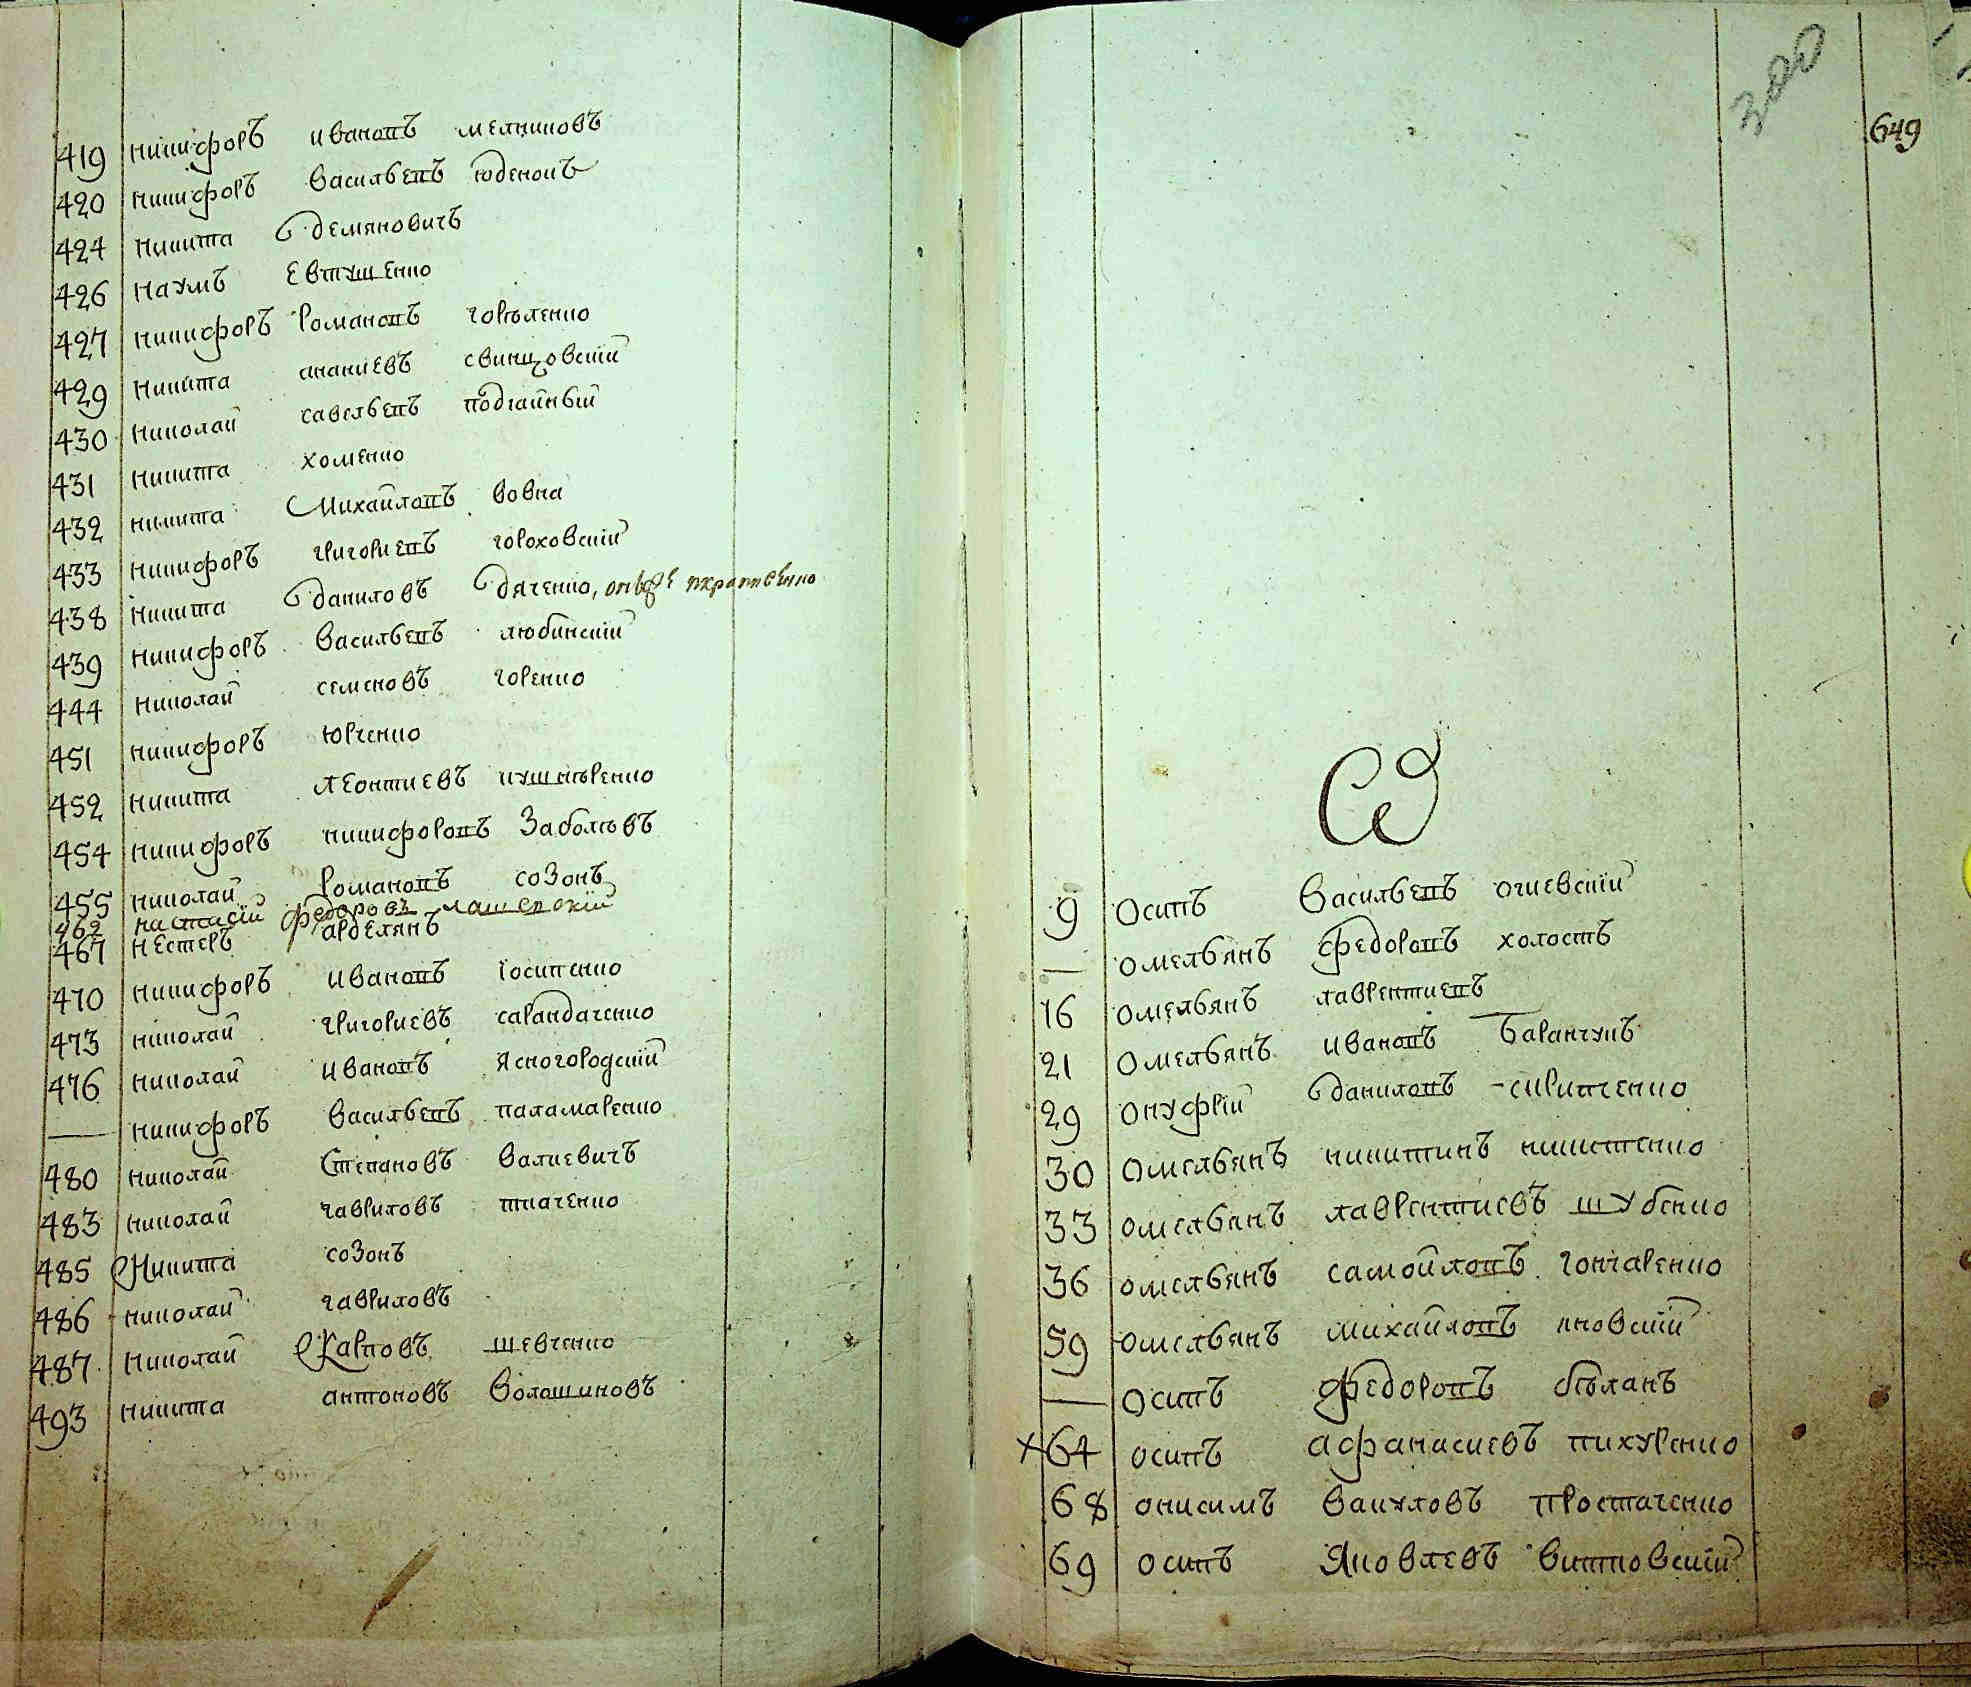 419 никифоръ ивановъ мелниковъ
420 никифоръ васильевъ юденоиъ
424 никита демяновичъ
426 наумъ евтушенко
427 никифоръ романовъ горѣленко
429 никита ананиевъ свинцовский
430 николай савельевъ подгайный
431 никита хоменко
432 никита михайловъ вовка
433 никифоръ григориевъ гороховский
438 никита даниловъ дяченко,
439 никифоръ васильевъ любинский
444 николай семеновъ горенко
451 никифоръ юрченко
452 никита леонтиевъ кушнѣренко
454 никифоръ никифоровъ
455 николай романовъ созонъ
462 федоровъ
467 нестеръ арделянъ
470 никифоръ ивановъ іосипенко
473 николай григориевъ сарандаченко
476 николай ивановъ ясногородский
— никифоръ васильевъ паламаренко
480 николай степановъ валкевичъ
483 николай гавриловъ ткаченко
485 никита созонъ
486 николай гавриловъ
487 николай карповъ шевченко
493 никита антоновъ волошиновъ
300
649
Ѡ
9 осипъ васильевъ огиевский
— омельянъ федоровъ холостъ
16 омельянъ лаврентиевъ
21 омельянъ ивановъ баранчукъ
29 онуфрій даниловъ
30 омельянъ никитинъ никитенко
33 омельянъ лаврентиевъ шубенко
36 омельянъ самойловъ гончаренко
59 омельянъ михайловъ яновский
— осипъ федоровъ бѣланъ
х 64 осипъ афанасиевъ пихуренко
68 онисимъ вакуловъ простаченко
69 осипъ яковлевъ витковский